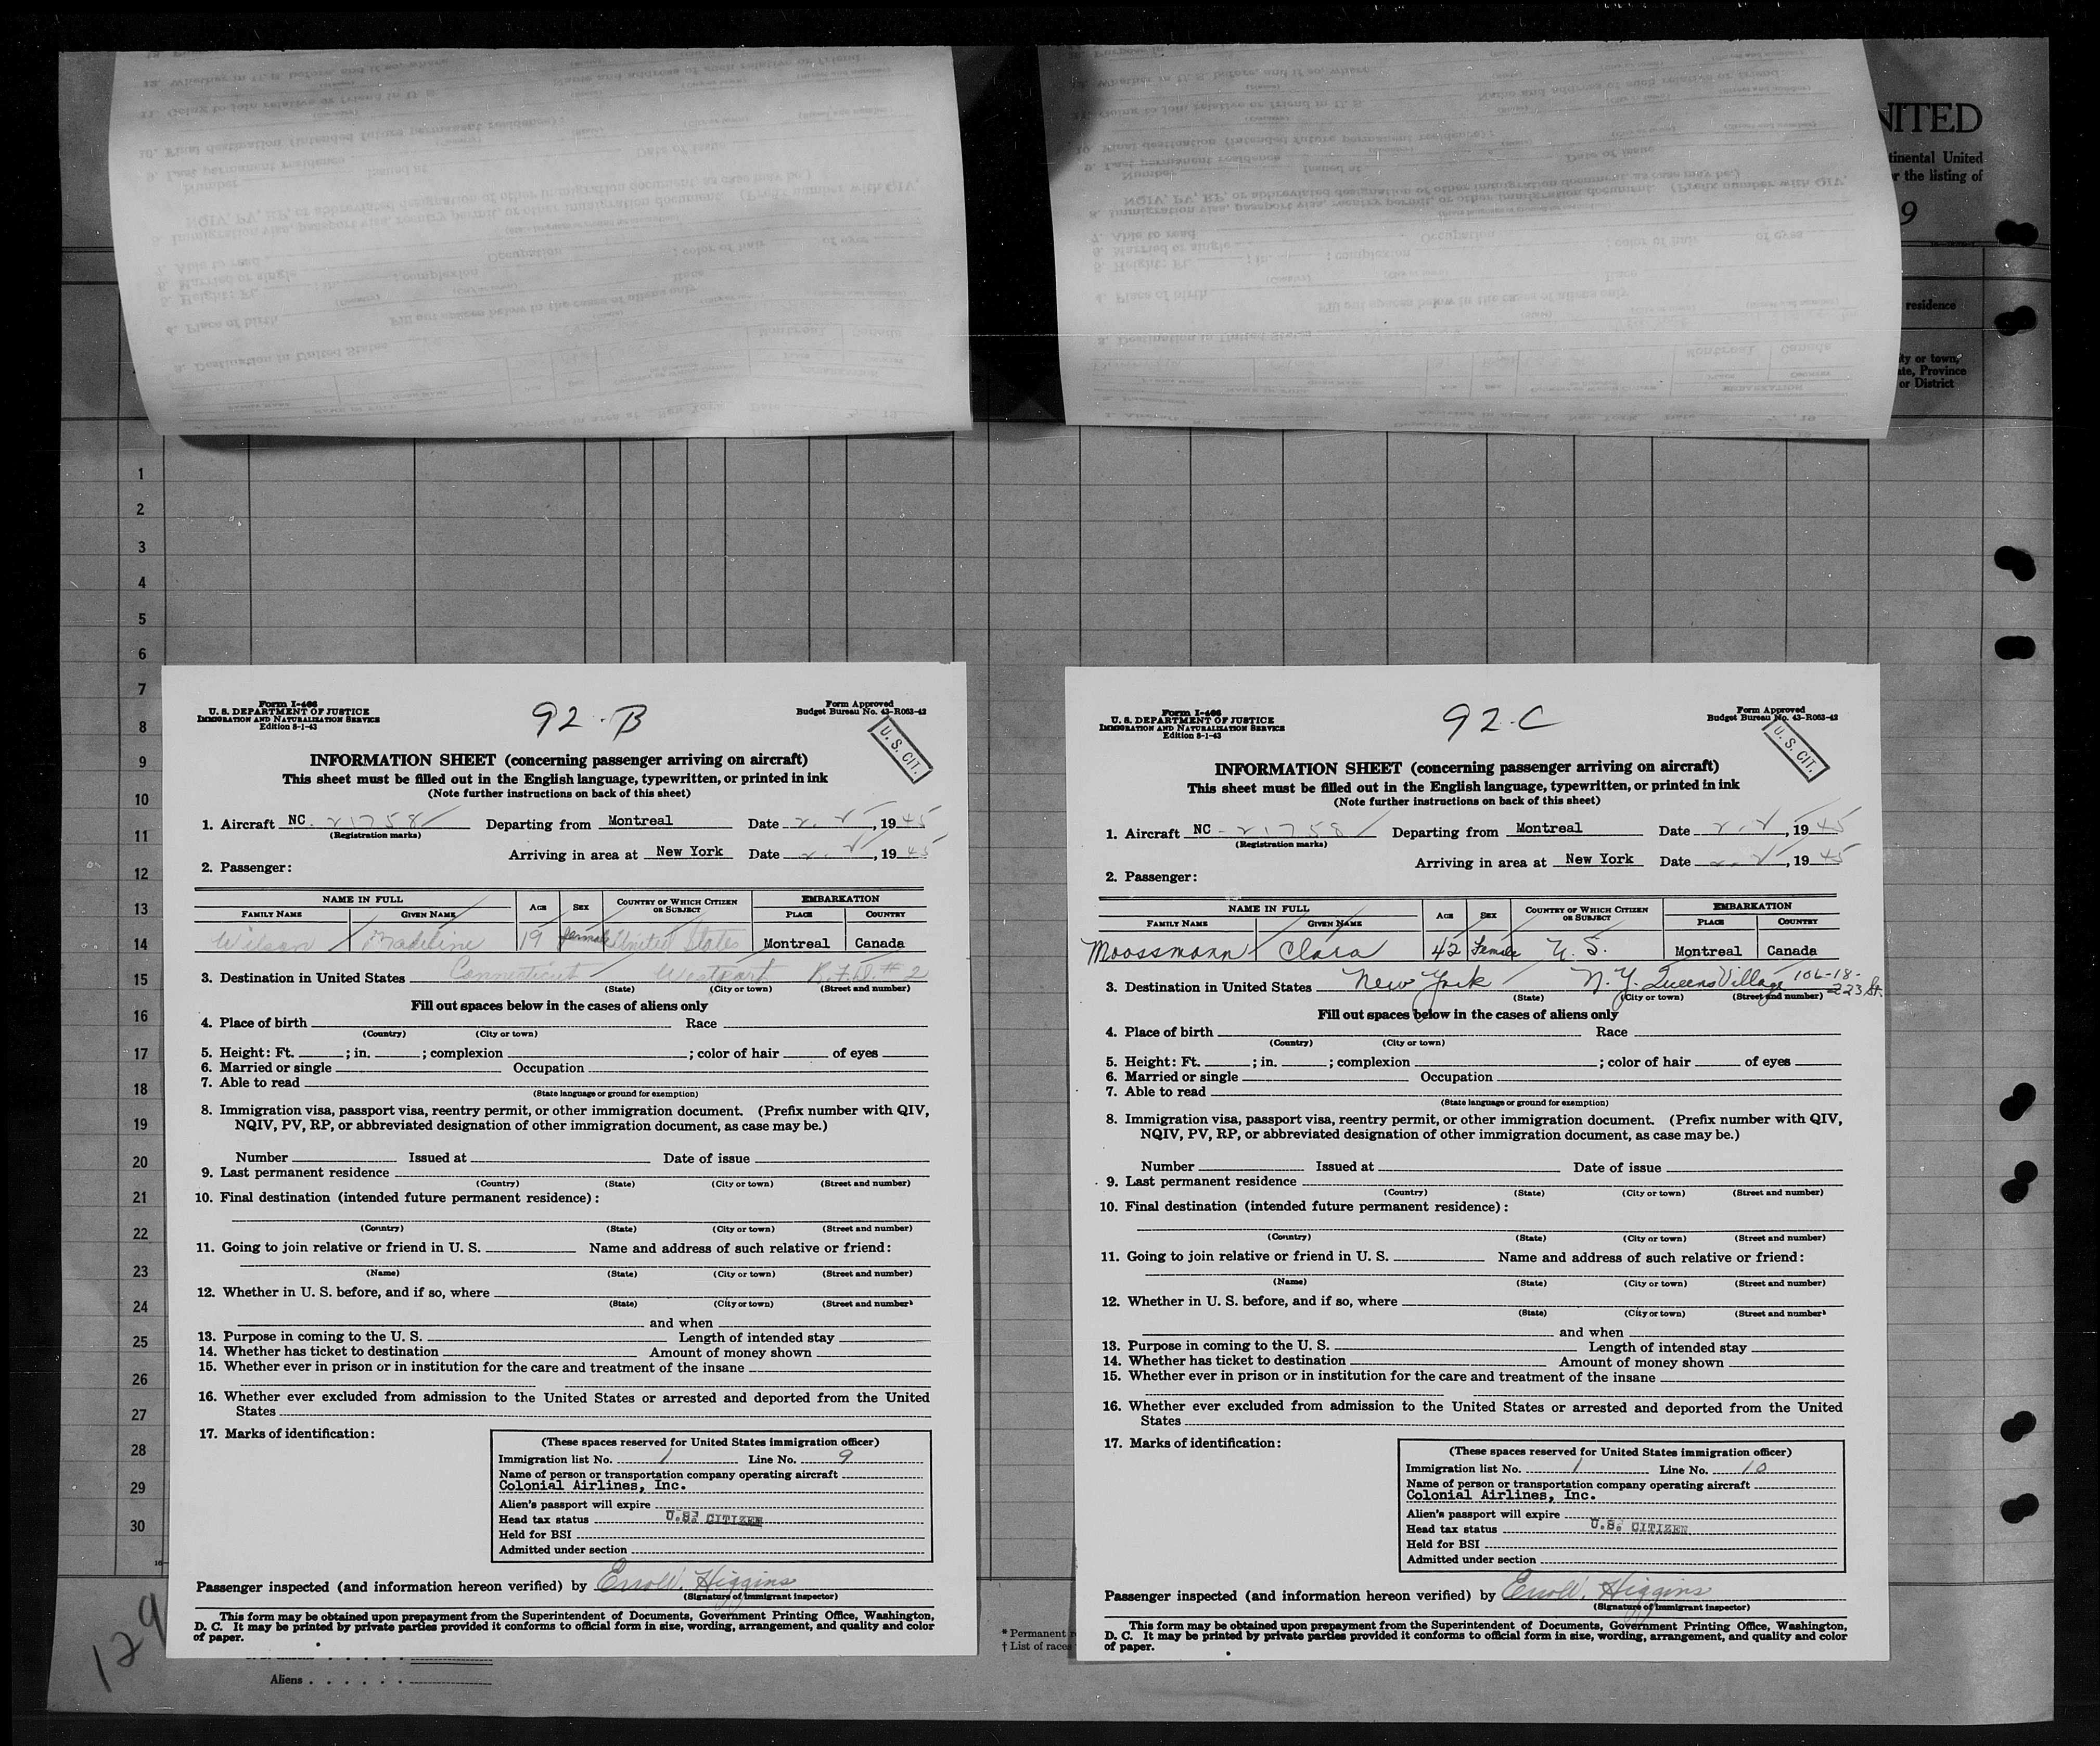 NITED
tinental United
r the listing of
9
residence
ity or town,
ate, Province
or District
1
2
3
4
5
6
7
8
9
10
11
12
13
14
15
16
17
18
19
20
21
22
23
24
25
26
27
28
29
30
Form I-466
U. S. DEPARTMENT OF JUSTICE
IMMIGRATION AND NATURALIZATION SERVICE
Edition 8-1-43
92-B
Form Approved
Budget Bureau No. 43-R063-42
U. S. CIT.
INFORMATION SHEET (concerning passenger arriving on aircraft)
This sheet must be filled out in the English language, typewritten, or printed in ink
(Note further instructions on back of this sheet)
1. Aircraft NC- 21758 Departing from Montreal Date 2. 2, 1945
(Registration marks)
Arriving in area at New York Date 2. 2, 1945
2. Passenger:
NAME IN FULL AGE SEX COUNTRY OF WHICH CITIZEN OR SUBJECT EMBARKATION
FAMILY NAME GIVEN NAME PLACE COUNTRY
Wilson Madeline 19 female United States Montreal Canada
3. Destination in United States Connecticut Westport R.F.D. #2
(State) (City or town) (Street and number)
Fill out spaces below in the cases of aliens only
4. Place of birth Race
(Country) (City or town)
5. Height: Ft. ; in. ; complexion ; color of hair of eyes
6. Married or single Occupation
7. Able to read
(State language or ground for exemption)
8. Immigration visa, passport visa, reentry permit, or other immigration document. (Prefix number with QIV,
NQIV, PV, RP, or abbreviated designation of other immigration document, as case may be.)
Number Issued at Date of issue
9. Last permanent residence
(Country) (State) (City or town) (Street and number)
10. Final destination (intended future permanent residence):
(Country) (State) (City or town) (Street and number)
11. Going to join relative or friend in U. S. Name and address of such relative or friend:
(Name) (State) (City or town) (Street and number)
12. Whether in U. S. before, and if so, where
(State) (City or town) (Street and number)
and when
13. Purpose in coming to the U. S. Length of intended stay
14. Whether has ticket to destination Amount of money shown
15. Whether ever in prison or in institution for the care and treatment of the insane
16. Whether ever excluded from admission to the United States or arrested and deported from the United
States
17. Marks of identification:
(These spaces reserved for United States immigration officer)
Immigration list No. 1 Line No. 9
Name of person or transportation company operating aircraft
Colonial Airlines, Inc.
Alien's passport will expire
Head tax status U.S. CITIZEN
Held for BSI
Admitted under section
Passenger inspected (and information hereon verified) by Errol W. Higgins
(Signature of immigrant inspector)
This form may be obtained upon prepayment from the Superintendent of Documents, Government Printing Office, Washington,
D. C. It may be printed by private parties provided it conforms to official form in size, wording, arrangement, and quality and color
of paper.
Form I-466
U. S. DEPARTMENT OF JUSTICE
IMMIGRATION AND NATURALIZATION SERVICE
Edition 8-1-43
92-C
Form Approved
Budget Bureau No. 43-R063-42
U. S. CIT.
INFORMATION SHEET (concerning passenger arriving on aircraft)
This sheet must be filled out in the English language, typewritten, or printed in ink
(Note further instructions on back of this sheet)
1. Aircraft NC - 21758 Departing from Montreal Date 2. 2, 1945
(Registration marks)
Arriving in area at New York Date 2. 2, 1945
2. Passenger:
NAME IN FULL AGE SEX COUNTRY OF WHICH CITIZEN OR SUBJECT EMBARKATION
FAMILY NAME GIVEN NAME PLACE COUNTRY
Moossmann Clara 42 Female U. S. Montreal Canada
3. Destination in United States New York N. Y. Queens Village 106-18- 223 St.
(State) (City or town) (Street and number)
Fill out spaces below in the cases of aliens only
4. Place of birth Race
(Country) (City or town)
5. Height: Ft. ; in. ; complexion ; color of hair of eyes
6. Married or single Occupation
7. Able to read
(State language or ground for exemption)
8. Immigration visa, passport visa, reentry permit, or other immigration document. (Prefix number with QIV,
NQIV, PV, RP, or abbreviated designation of other immigration document, as case may be.)
Number Issued at Date of issue
9. Last permanent residence
(Country) (State) (City or town) (Street and number)
10. Final destination (intended future permanent residence):
(Country) (State) (City or town) (Street and number)
11. Going to join relative or friend in U. S. Name and address of such relative or friend:
(Name) (State) (City or town) (Street and number)
12. Whether in U. S. before, and if so, where
(State) (City or town) (Street and number)
and when
13. Purpose in coming to the U. S. Length of intended stay
14. Whether has ticket to destination Amount of money shown
15. Whether ever in prison or in institution for the care and treatment of the insane
16. Whether ever excluded from admission to the United States or arrested and deported from the United
States
17. Marks of identification:
(These spaces reserved for United States immigration officer)
Immigration list No. 1 Line No. 10
Name of person or transportation company operating aircraft
Colonial Airlines, Inc.
Alien's passport will expire
Head tax status U.S. CITIZEN
Held for BSI
Admitted under section
Passenger inspected (and information hereon verified) by Errol W. Higgins
(Signature of immigrant inspector)
This form may be obtained upon prepayment from the Superintendent of Documents, Government Printing Office, Washington,
D. C. It may be printed by private parties provided it conforms to official form in size, wording, arrangement, and quality and color
of paper.
129
* Permanent
† List of races
Aliens